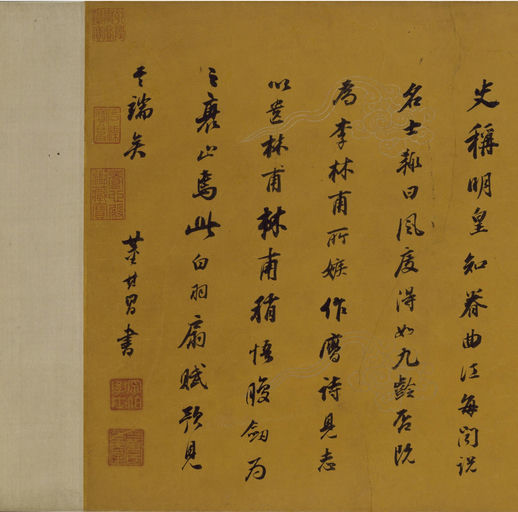 史稱明皇知眷曲江每說
名士輒曰風度得如九齡否既
為李林甫所嫉作詩見志
以遺林甫林甫稍悟腹劍為
之衰止焉此白羽扇賦見
其瑞矣
董其昌書